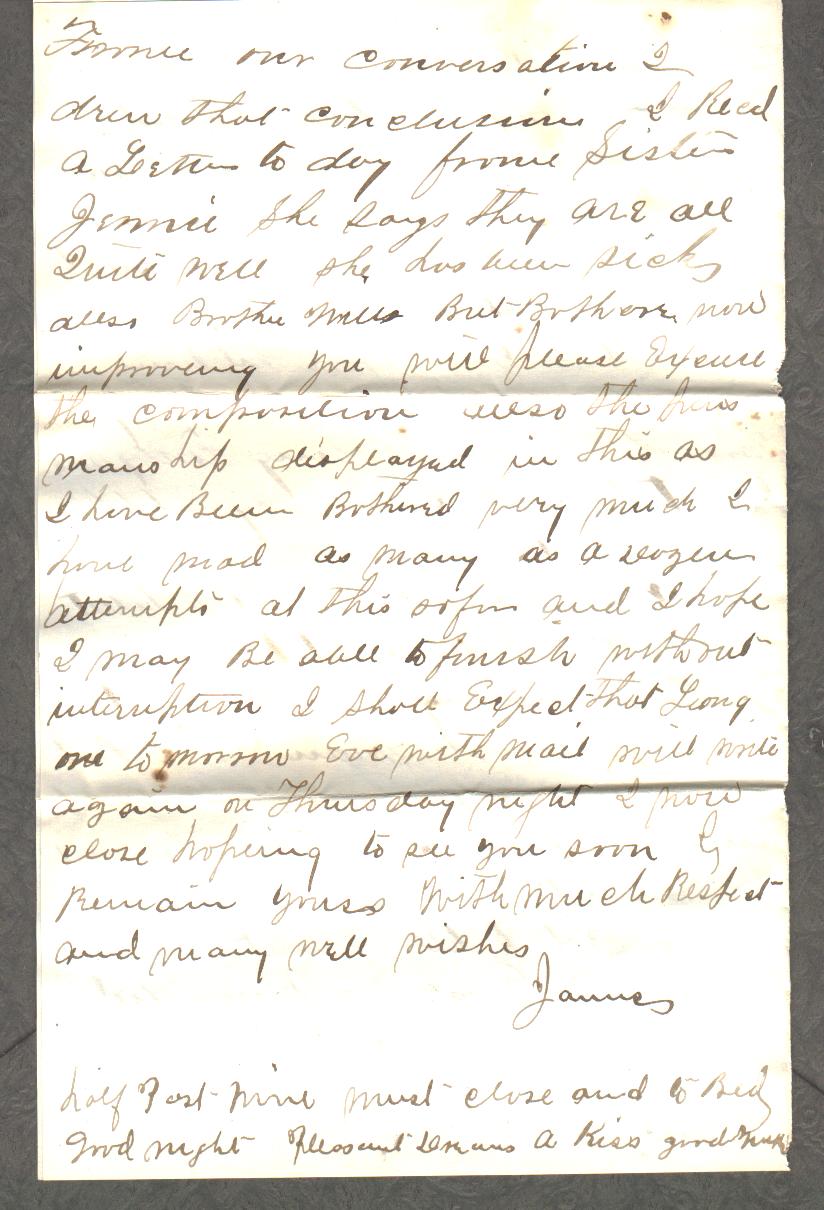 Frome our conversation I
drew that conclusion I Recd
a Letter to day frome Sister
Jennie She says they are all
Quite well she has been sick
allso Brother Will But Both are now
improveing you will please Excuse
the composition allso the
manship displayed in this as
I have Been Bothered very much I
have mad as many as a dozen
attempts at this sofar and I hope
I may Be able to finish without
interruption I shall Expect that Long
one to morrow Eve with mail will write
again on Thursday night I now
close hopeing to see you soon I
Remain yours With much Respect
and many well wishes
James
half Past Nine must close and to Bed
good night Pleasant Dreams a Kiss good